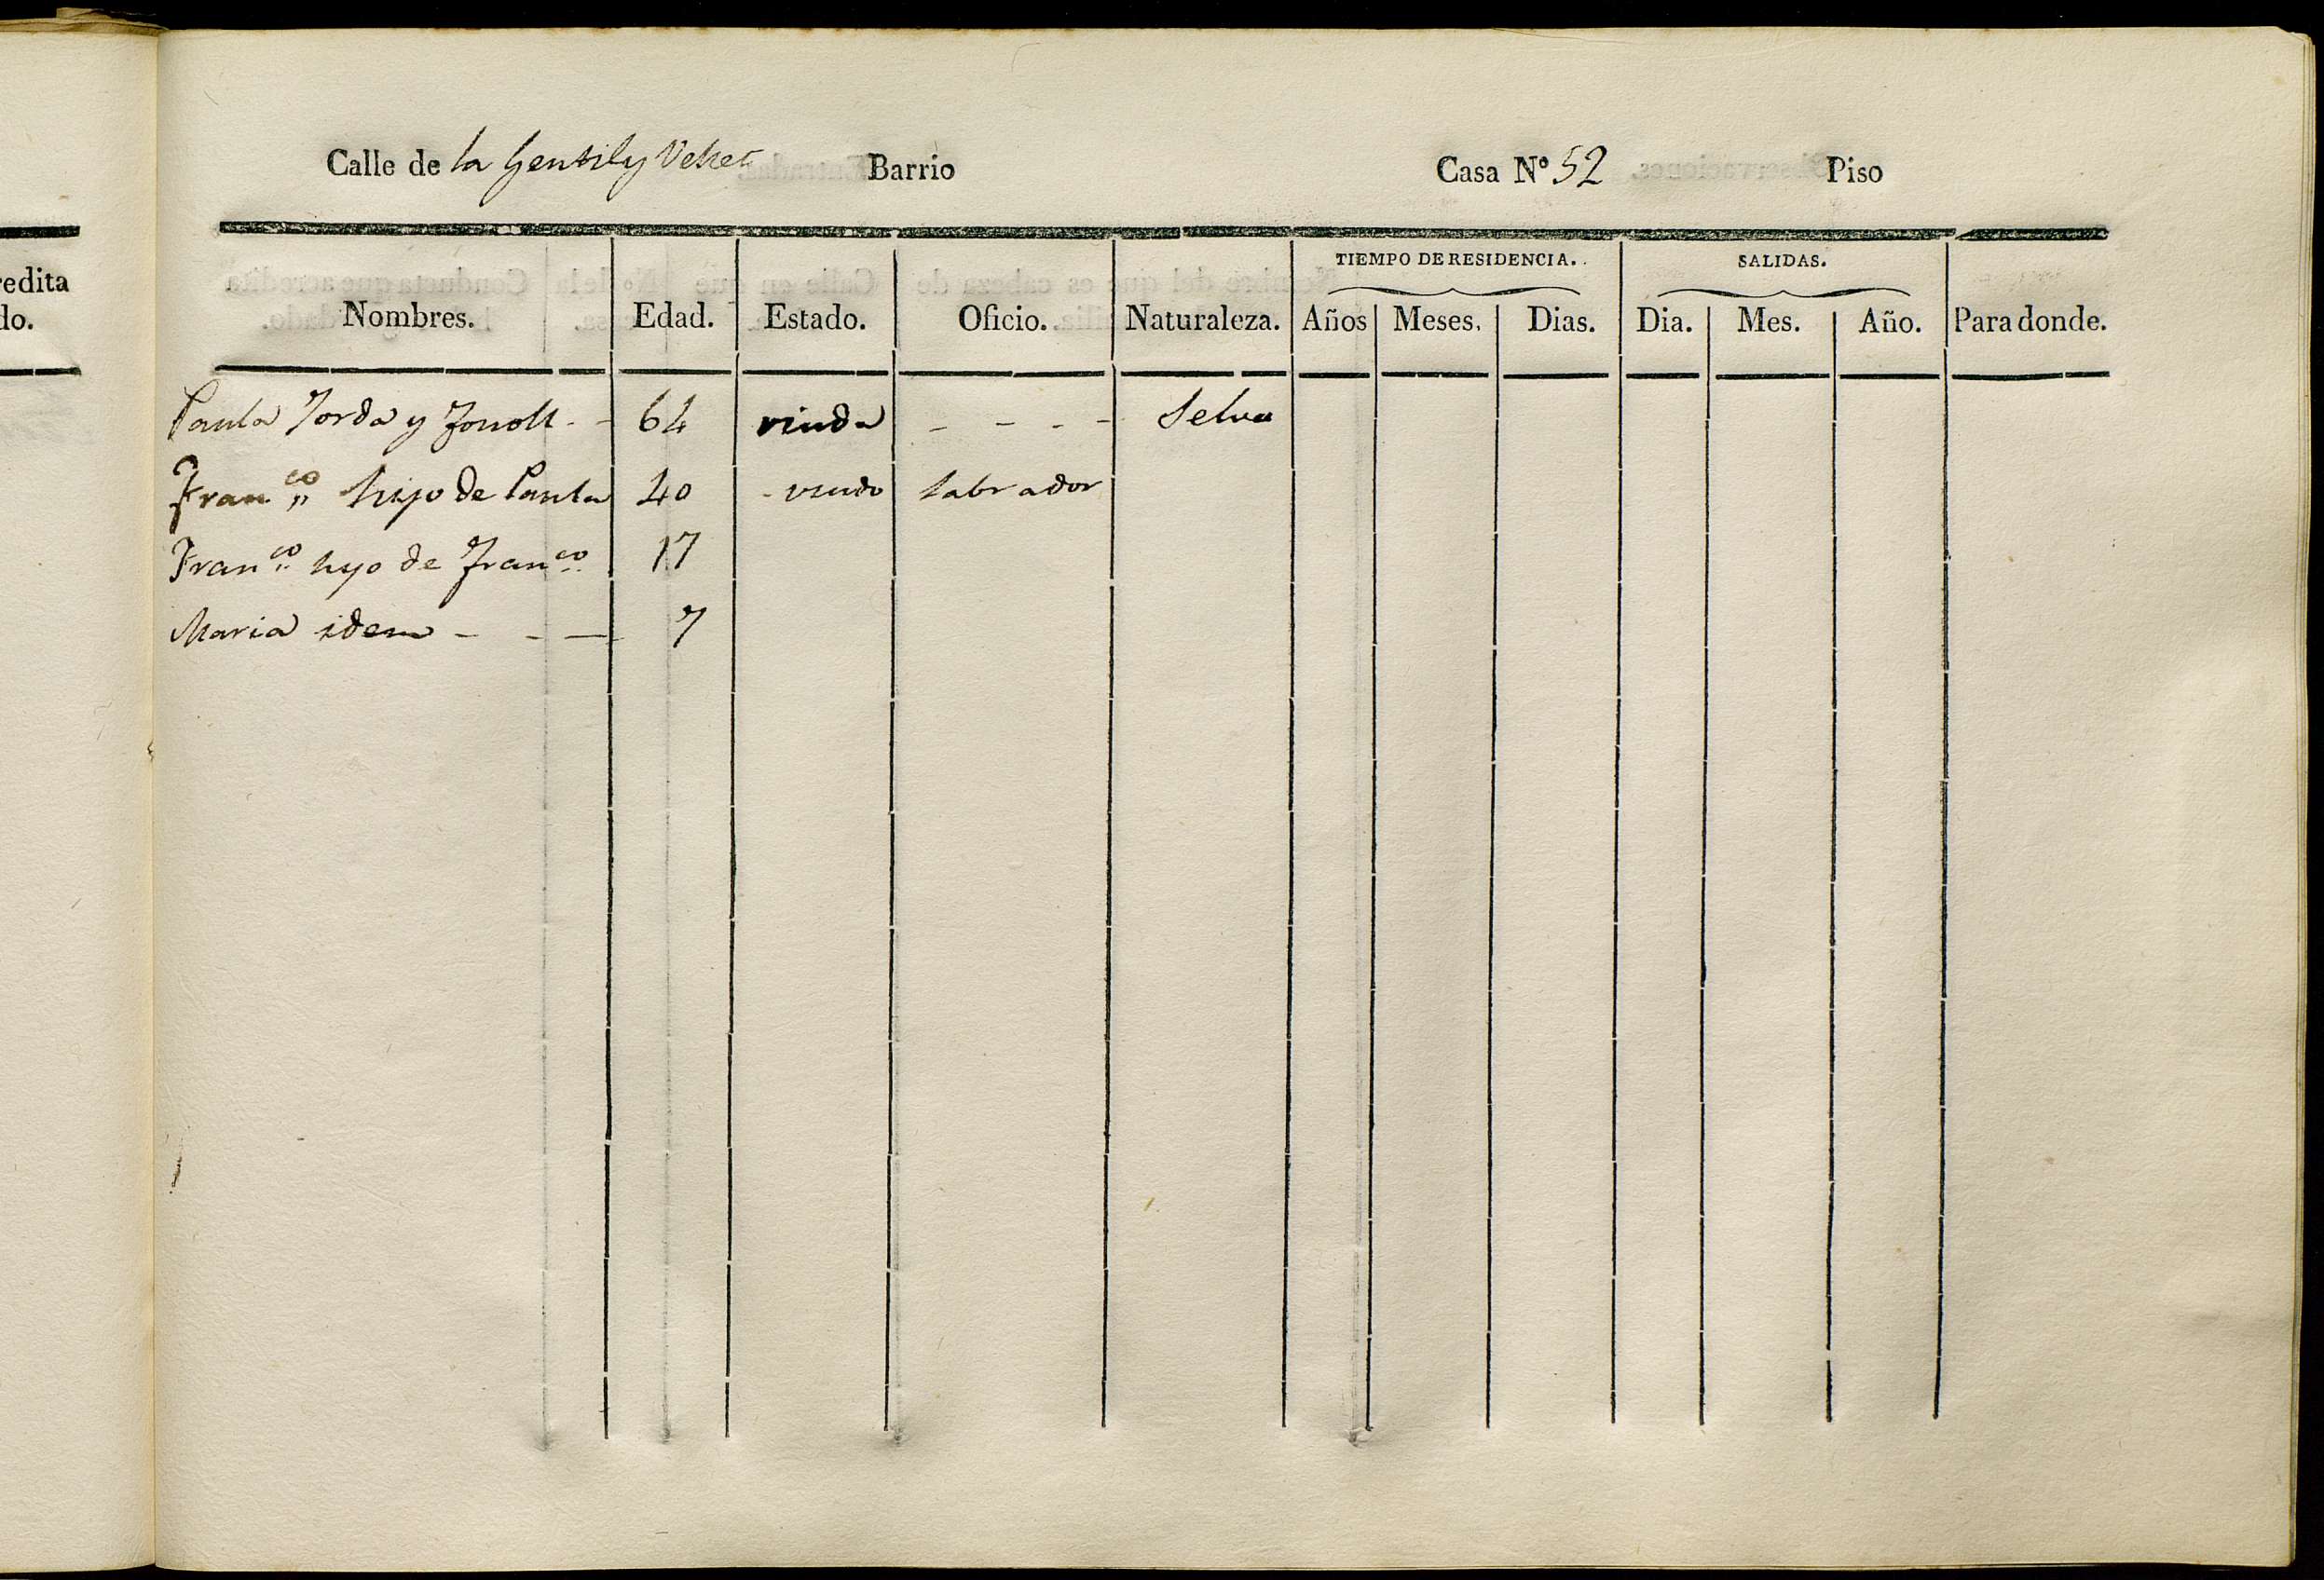 redita
do.
Calle de la Gentil y Vehet Barrio Casa Nº 52 Piso
TIEMPO DE RESIDENCIA. SALIDAS.
Nombres. Edad. Estado. Oficio. Naturaleza. Años Meses. Dias. Dia. Mes. Año. Para donde.
Paula Jorda y 64 viuda - - - - Selva
Fran.co hijo de Paula 40 viudo labrador
Fran.co hijo de Fran.co 17
Maria idem - - - 7